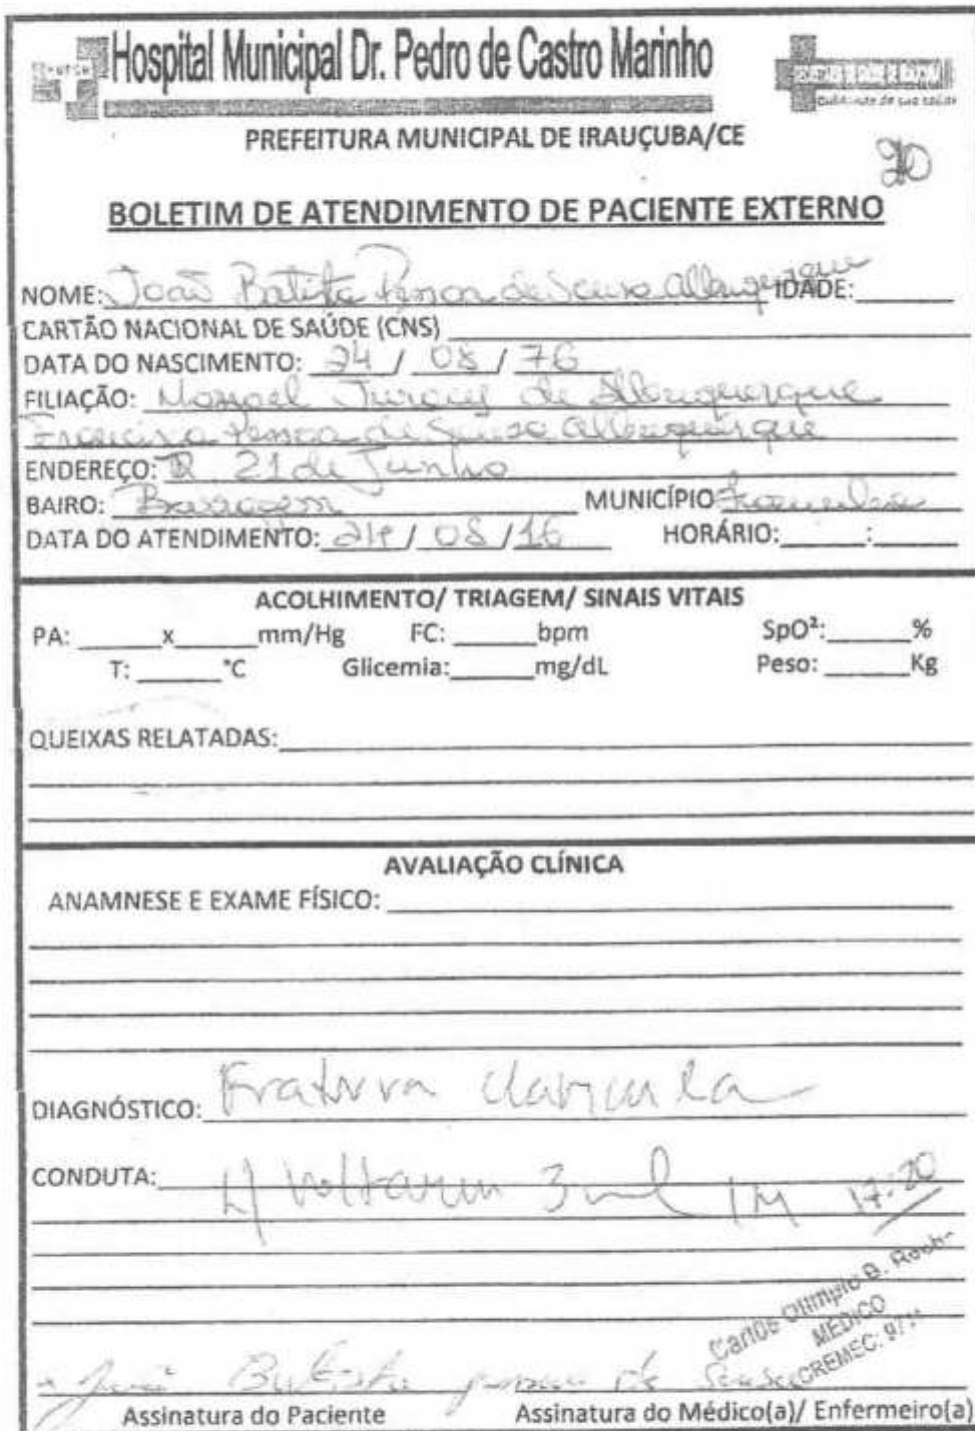 Hospital Municipal Dr. Pedro de Castro Marinho
SECRETARIA DE SAÚDE DE IRAUÇUBA
Cuidando de sua saúde
PREFEITURA MUNICIPAL DE IRAUÇUBA/CE
20
BOLETIM DE ATENDIMENTO DE PACIENTE EXTERNO
NOME: João Batista Pessoa de Sousa Albuquerque IDADE:
CARTÃO NACIONAL DE SAÚDE (CNS)
DATA DO NASCIMENTO: 24 / 08 / 76
FILIAÇÃO: Juracy de Albuquerque
Francisca Pessoa de Sousa Albuquerque
ENDEREÇO: R 21 de Junho
BAIRO: Barragem MUNICÍPIO
DATA DO ATENDIMENTO: 24 / 08 / 16 HORÁRIO: :
ACOLHIMENTO/ TRIAGEM/ SINAIS VITAIS
PA: x mm/Hg FC: bpm SpO²: %
T: °C Glicemia: mg/dL Peso: Kg
QUEIXAS RELATADAS:
AVALIAÇÃO CLÍNICA
ANAMNESE E EXAME FÍSICO:
DIAGNÓSTICO: Fratura clavicula
CONDUTA: Voltaren 3 ml IM 17:20
Carlos Olimpio B. Roch
MÉDICO
CREMEC: 97
João Batista pessoa de Sousa
Assinatura do Paciente Assinatura do Médico(a)/ Enfermeiro(a)